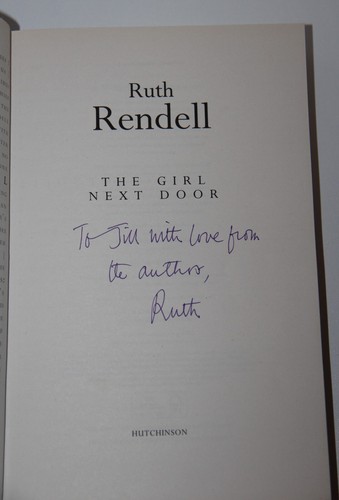 Ruth
Rendell
THE GIRL
NEXT DOOR
To Jill with love from
the author,
Ruth
HUTCHINSON